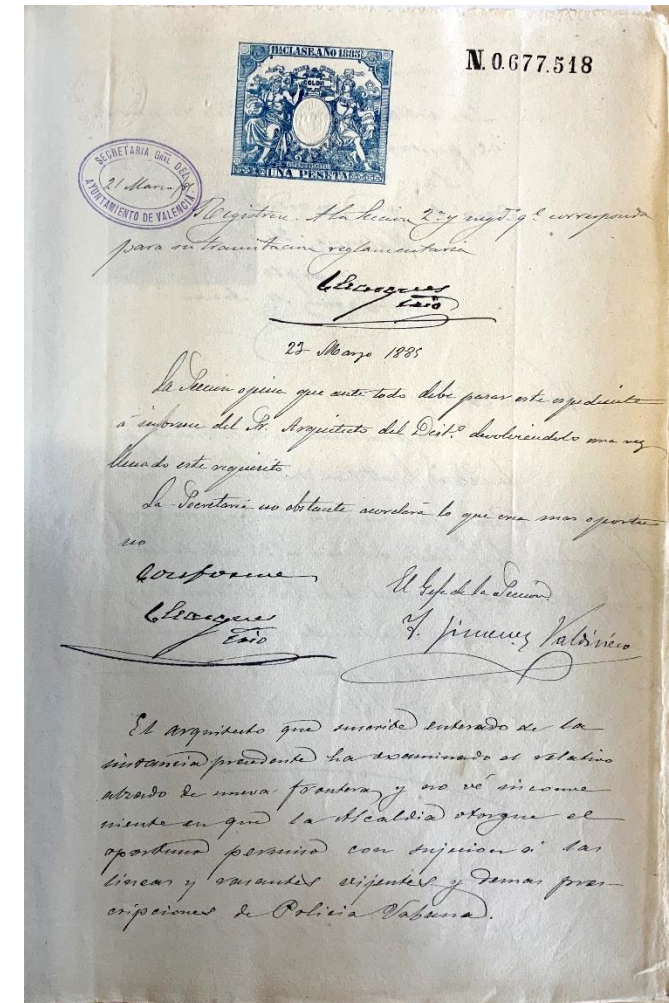 11ª CLASE AÑO 1885
N. 0.677.518
UNA PESETA
SECRETARIA GRAL DEL
AYUNTAMIENTO DE VALENCIA
21 Marzo
Registrese. A la Seccion 2ª y negdº qe corresponda
para su tramitacion reglamentaria
23 Marzo 1885
La Seccion opina que ante todo debe pasar este espediente
á informe del Sr. Arquitecto del Distº devolviendolo una vez
llenado este requisito
La Secretaria no obstante acordará lo que crea mas oportu
no
Conforme
El Gefe de la Seccion
F. Jimenez Valdivieso
El arquitecto que suscribe enterado de la
instancia precedente ha examinado el relativo
alzado de nueva frontera y no vé inconve
niente en que la Alcaldia otorgue el
oportuno permiso con sujecion á las
lineas y rasantes vijentes y demas pres-
cripciones de Policia Urbana.